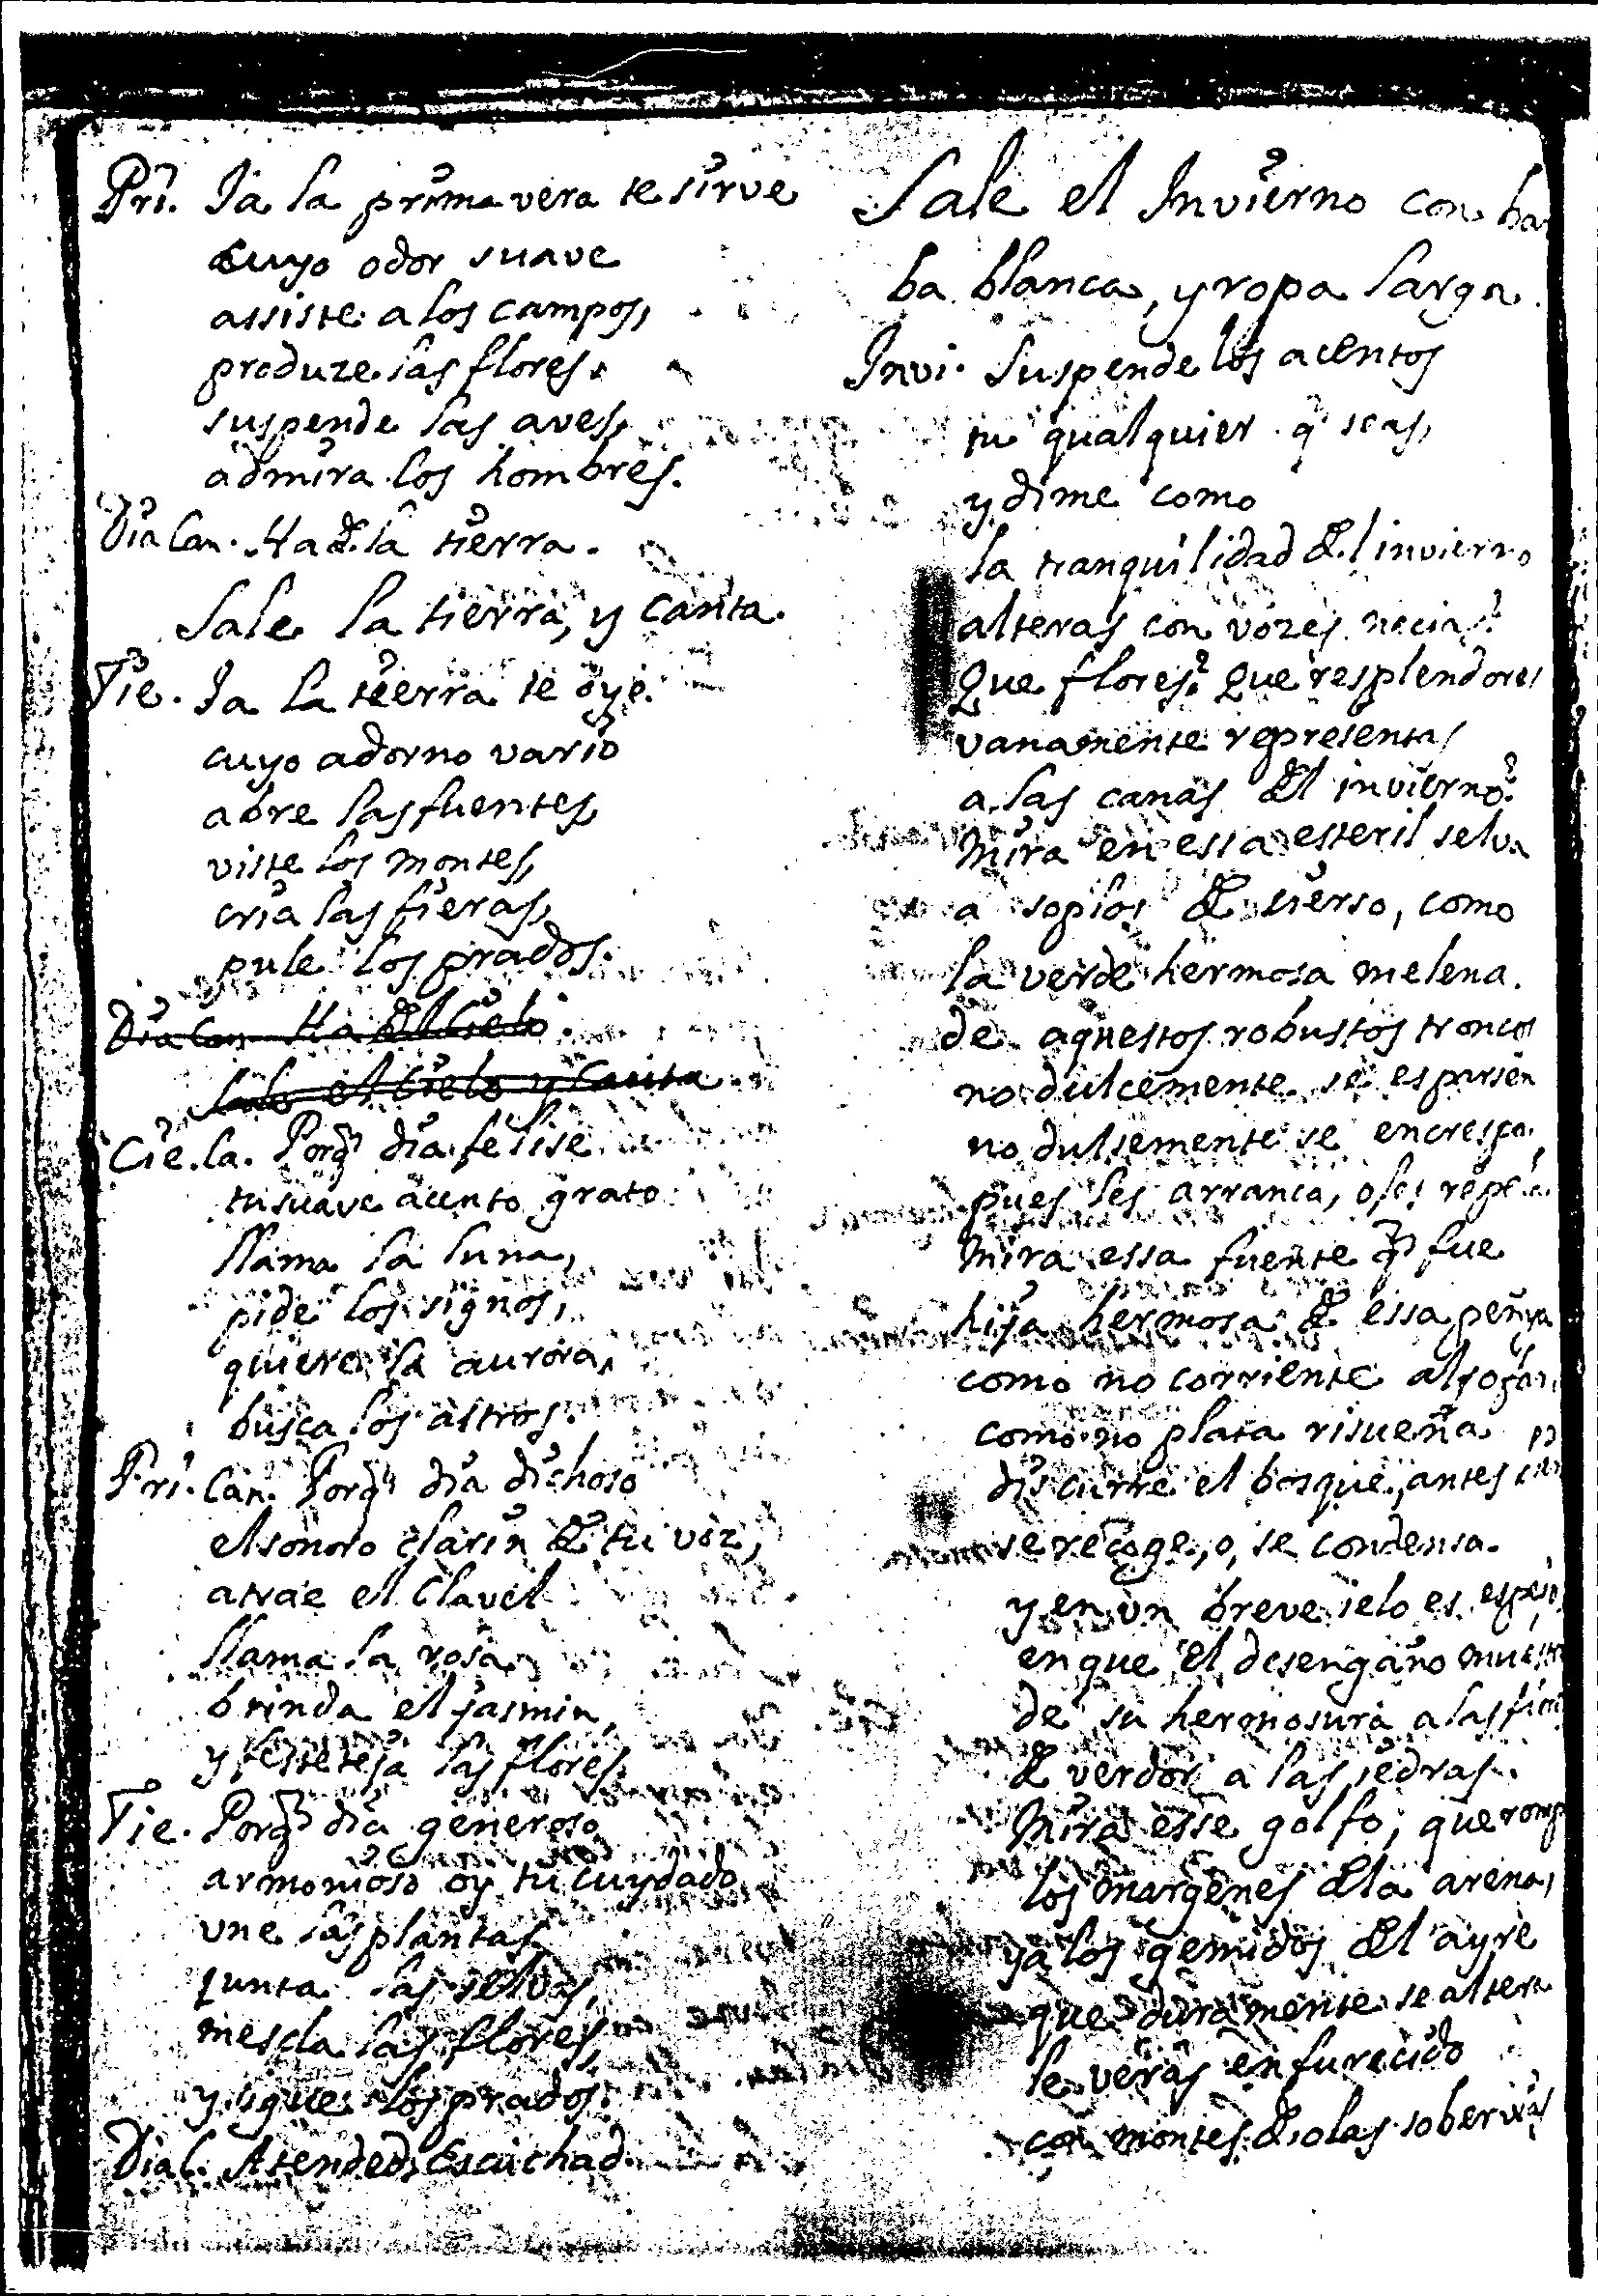 Pri. Ja la primavera te sirve
cuyo odor suave
assiste a los campos,
produze las flores,
suspende las aves,
admira los hombres.
Dia Can. Ha de la tierra.
Sale la tierra, y canta.
Tie. Ja la tierra te oye.
cuyo adorno vario
abre las fuentes,
viste los montes,
cria las fieras,
pule los prados.
Dia Can Ha del Cielo.
Sale el Cielo y Canta
Cie. ca. Porq dia felise
tu suave acento grato
llama la luna,
pide los signos,
quiere la aurora,
busca los astros.
Pri. Can. Porq dia dichoso
el sonoro clarin de tu voz,
atrae el clavel
llama la rosa
brinda el jasmin,
y festeteja las flores.
Tie. Porq dia generoso
armonioso oy tu cuydado
une las plantas
junta las selvas,
mescla las flores,
y sigue los prados.
Dia C. Atended, Escuchad.
Sale el Invierno con ba
ba blanca, y ropa larga.
Invi. Suspende los acentos
tu qualquier q seas,
y dime como
la tranquilidad del invierno
alteras con vozes necias?
Que flores? Que resplendores
vanamente representas
a las canas del invierno?
Mira en essa esteril selva
a soplos de cierso, como
la verde hermosa melena.
de aquestos robustos troncos
no dulcemente se esparsen
no dulsemente se encrespa,
pues les arranca, o les
Mira essa fuente q fue
hija hermosa de essa penya
como no corriente aljofar
como no plata risueña
discurre el bosque, antes
se recoge, o, se condensa.
y en un breve ielo es espejo
en que el desengaño muestr
de su hermosura a las
de verdor a las iedras.
Mira esse golfo, que romp
los margenes de la arena,
y a los gemidos del ayre
que duramente se altera
le veras enfurecido
con montes de olas sobervias